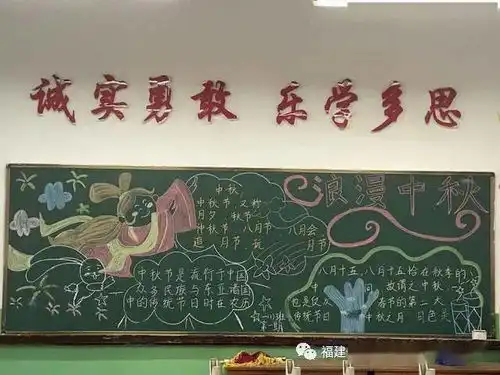 诚实勇敢 乐学多思
浪漫中秋
中秋
中秋节 又称
月夕 秋节
仲秋节 八月节 八月会
追月节 玩 月节
中秋节是流行于中国
众多民族与东亚诸国
中的传统节日时在农历
八月十五
八月十五恰在秋季的
中 间 故谓之中秋
也是仅次 春节的第二大
传统节日 中秋之月
福建